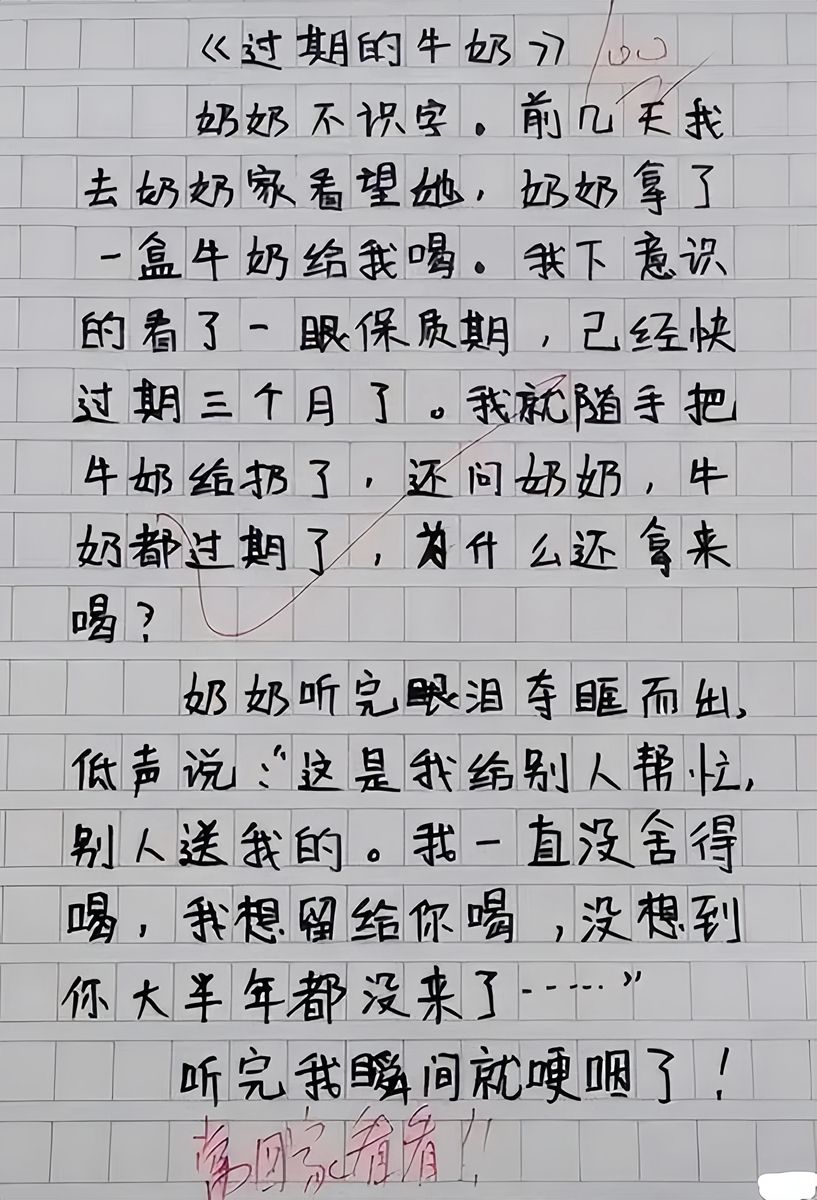 《过期的牛奶》 100
奶奶不识字。前几天我
去奶奶家看望她，奶奶拿了
一盒牛奶给我喝。我下意识
的看了一眼保质期，己经快
过期三个月了。我就随手把
牛奶给扔了，还问奶奶，牛
奶都过期了，为什么还拿来
喝？
奶奶听完眼泪夺眶而出，
低声说：“这是我给别人帮忙，
别人送我的。我一直没舍得
喝，我想留给你喝，没想到
你大半年都没来了……”
听完我瞬间就哽咽了！
常回家看看!!